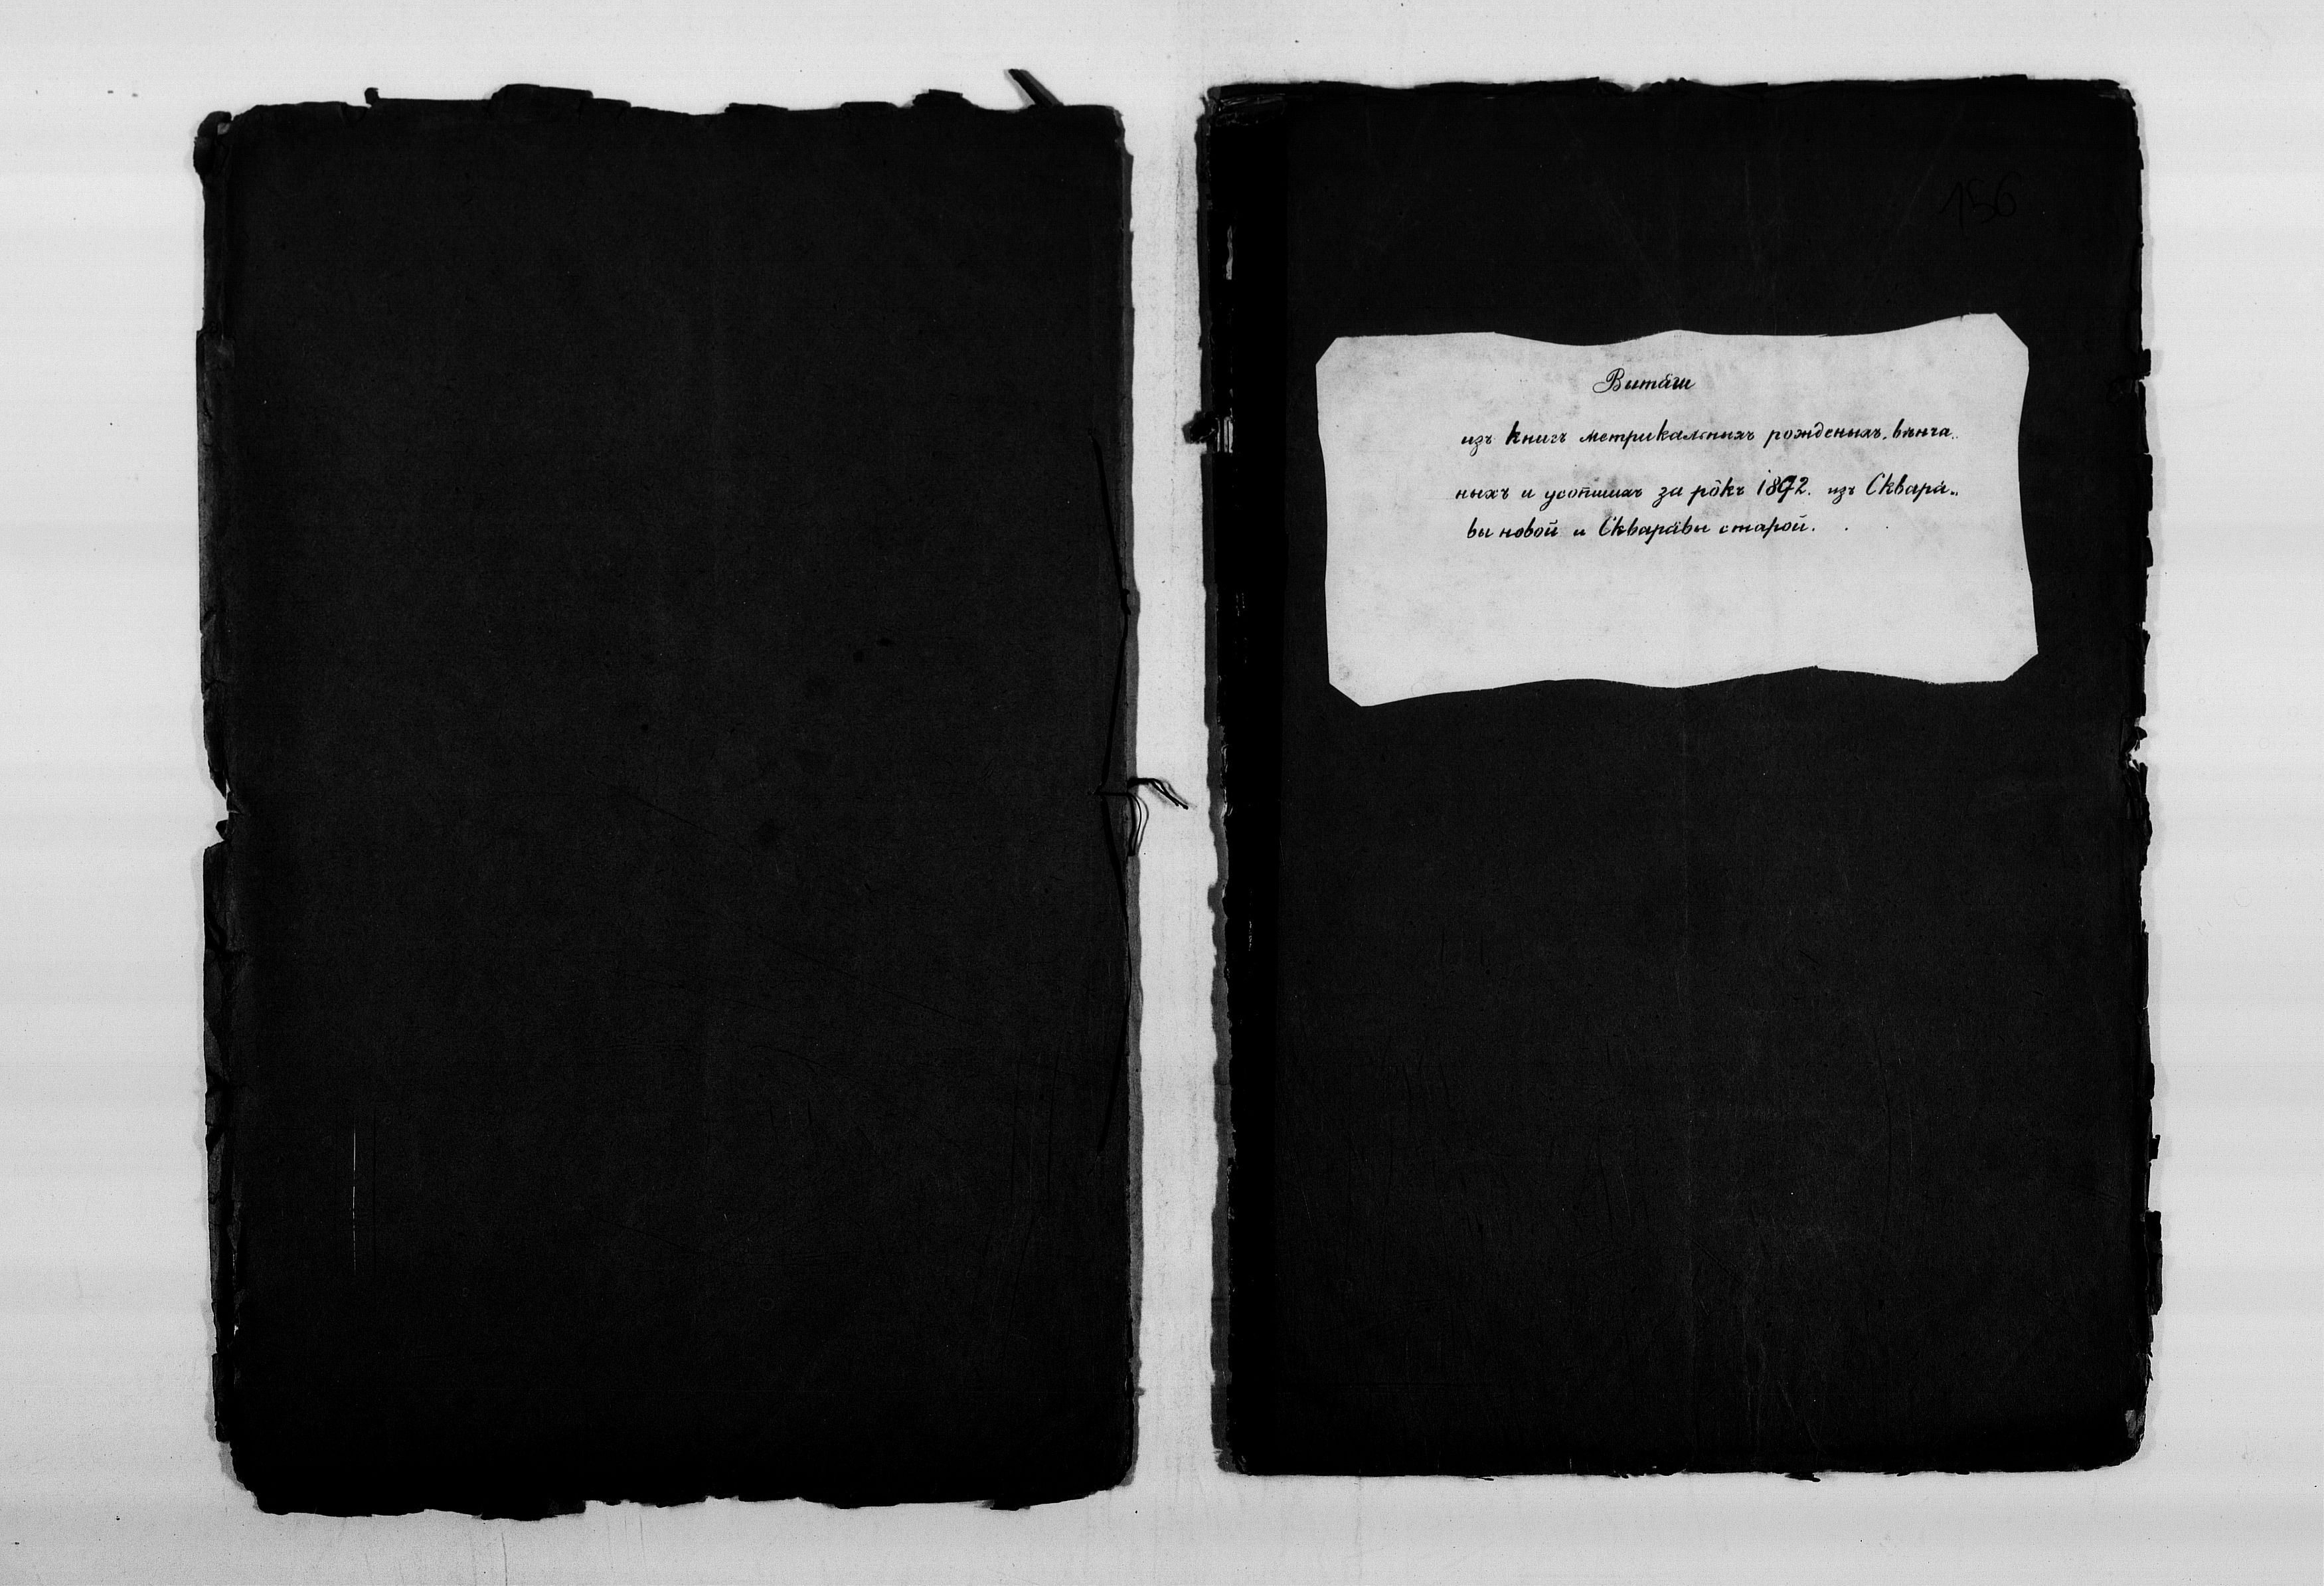 156
Витяги
изъ книгъ метрикальныхъ рожденыхъ, вѣнча„
ныхъ и усопшихъ за рôкъ 1892. изъ Сквара„
вы новой и Скварявы старой.